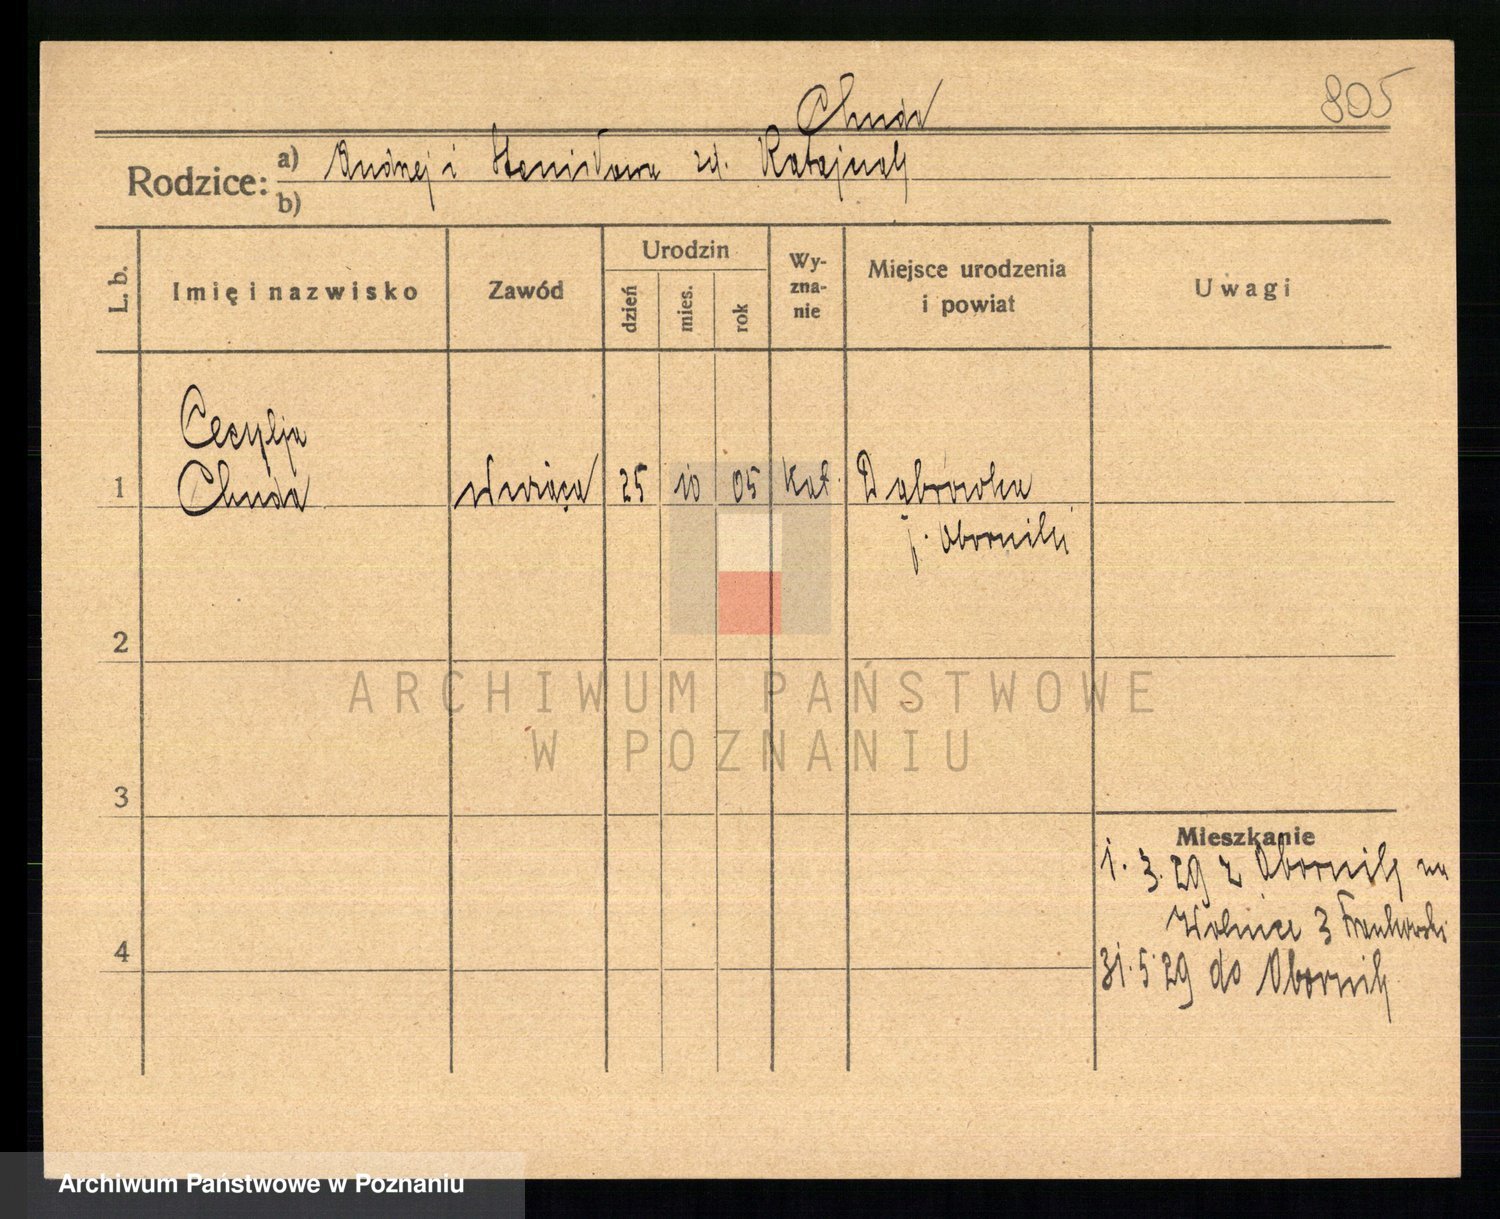 805
Chuda
Rodzice: a) Andrzej i Stanisława zd. Ratajczak
b)
L. b.
Imię i nazwisko
Zawód
Urodzin
dzień
mies.
rok
Wy-
zna-
nie
Miejsce urodzenia
i powiat
Uwagi
Cecylja
1 Chuda służąca 25 10 05 kat. Dąbrówka
p. Oborniki
2
3
4
Mieszkanie
1. 3. 29 z Obornik na
Wolnica 3 Frankowski
31. 5. 29 do Obornik
ARCHIWUM PAŃSTWOWE
W POZNANIU
Archiwum Państwowe w Poznaniu